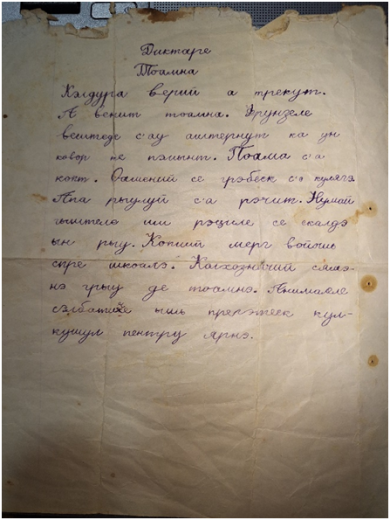 Диктаре
Тоамна
Кэлдура верий а трекут.
А венит тоамна. Фрунзеле
вештеде с'ау аштернут ка ун
ковор пе пэмынт. Поама с'а
копт. Оамений се грэбеск с'о кулягэ
Апа рыулуй с'а рэчит. Нумай
гыштеле ши рацеле се скалдэ
ын рыу. Копиий мерг войошь
спре шкоалэ. Колхозничий сямэ-
нэ грыу де тоамнэ. Анималеле
сэлбатиче ышь прегэтеск кул-
кушул пентру ярнэ.